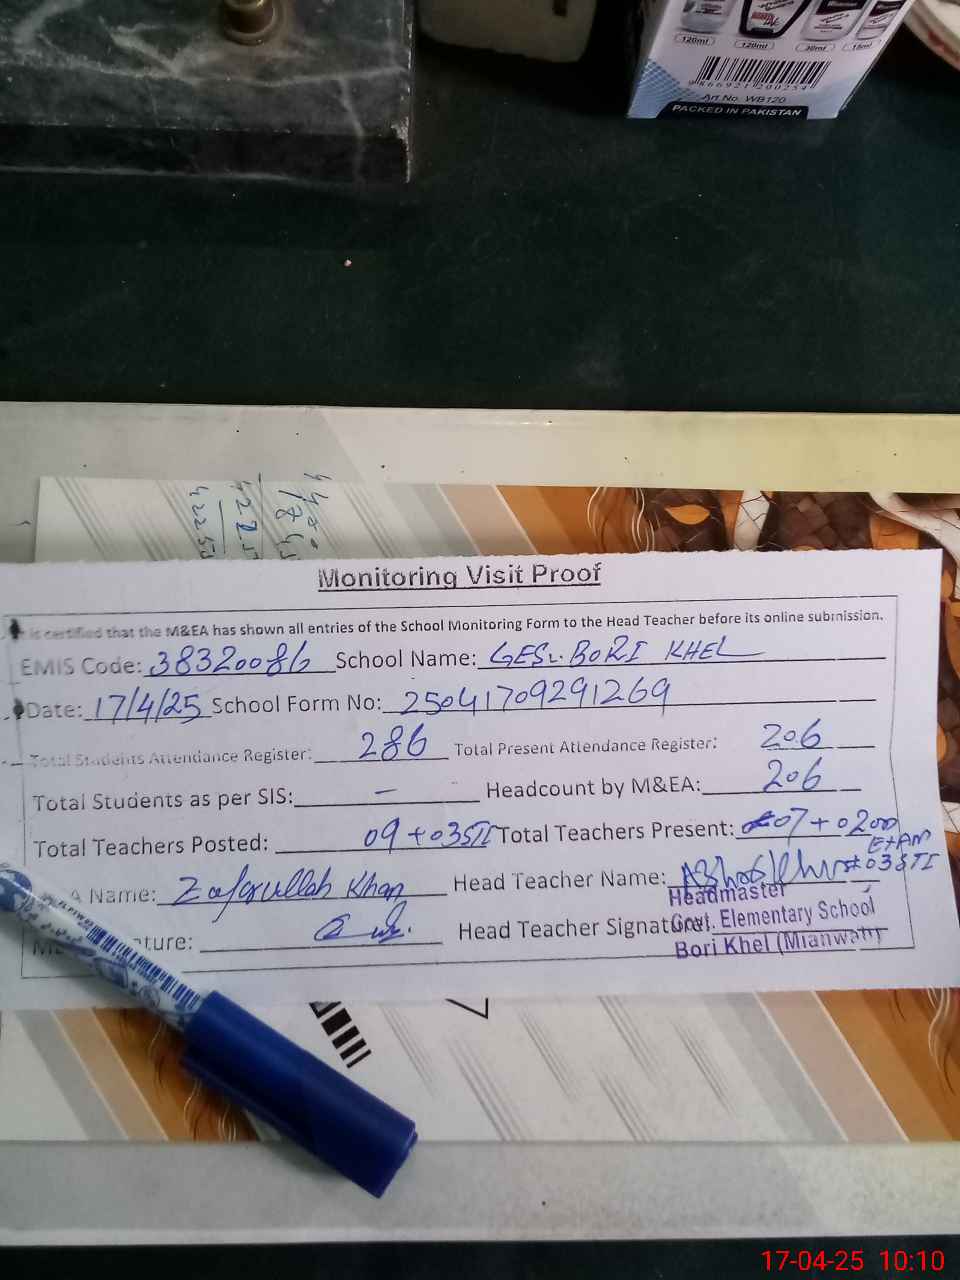 120ml 120ml 30ml 15ml
9866921200254
Art.No. WB120
PACKED IN PAKISTAN
Monitoring Visit Proof
is certified that the M&EA has shown all entries of the School Monitoring Form to the Head Teacher before its online submission.
EMIS Code: 38320086 School Name: GES. BORI KHEL
Date: 17/4/25 School Form No: 25041709291269
Total Students Attendance Register: 286 Total Present Attendance Register: 206
Total Students as per SIS: - Headcount by M&EA: 206
Total Teachers Posted: 09+03STI Total Teachers Present: 07+02on
Exam
+03STI
A Name: Zafarullah Khan Head Teacher Name:
Headmaster
ture: Head Teacher Signature:
Govt. Elementary School
Bori Khel (Mianwali)
17-04-25 10:10